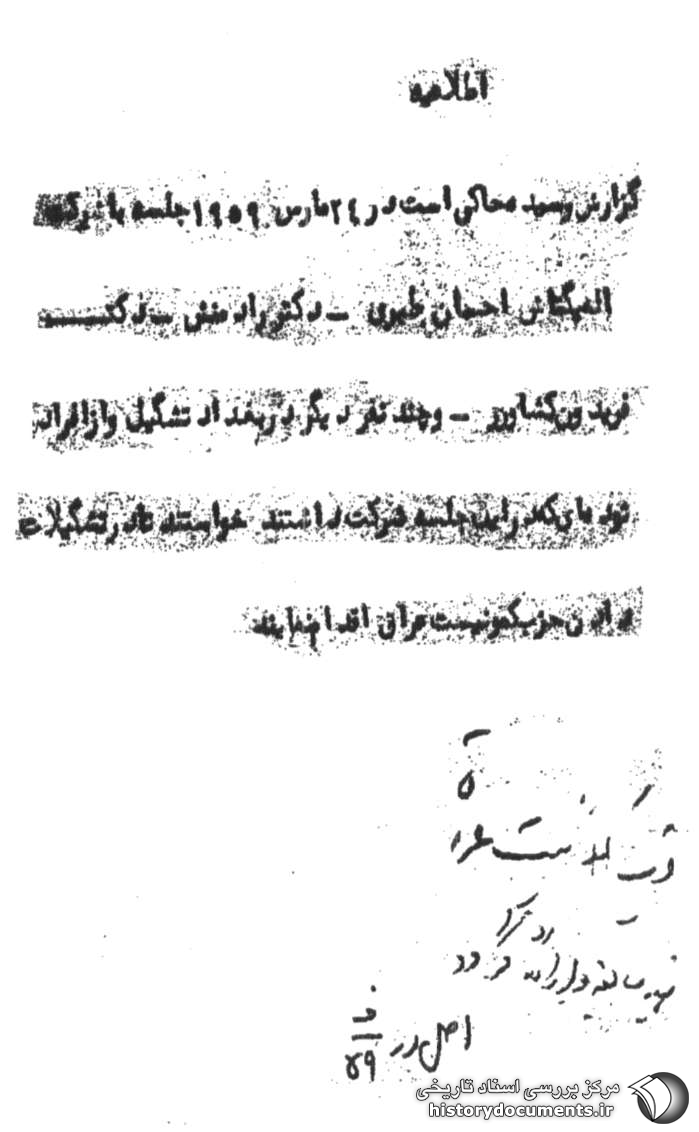 اطلاعیه
گزارش رسید محاکی است در ۲۴ مارس ۱۹۵۹ جلسه با شرکت
احسان طبری - دکتر راد منش - دکتــــر
فریدون کشاورز - و چند نفر دیگر در بغداد تشکیل و از افراد
توده ای که در این جلسه شرکت داشتند خواستند تا در تشکیلات
دادن حزب کمونیست عراق اقدام نمایند
اصل در ف/۵۹
مرکز بررسی اسناد تاریخی
historydocuments.ir